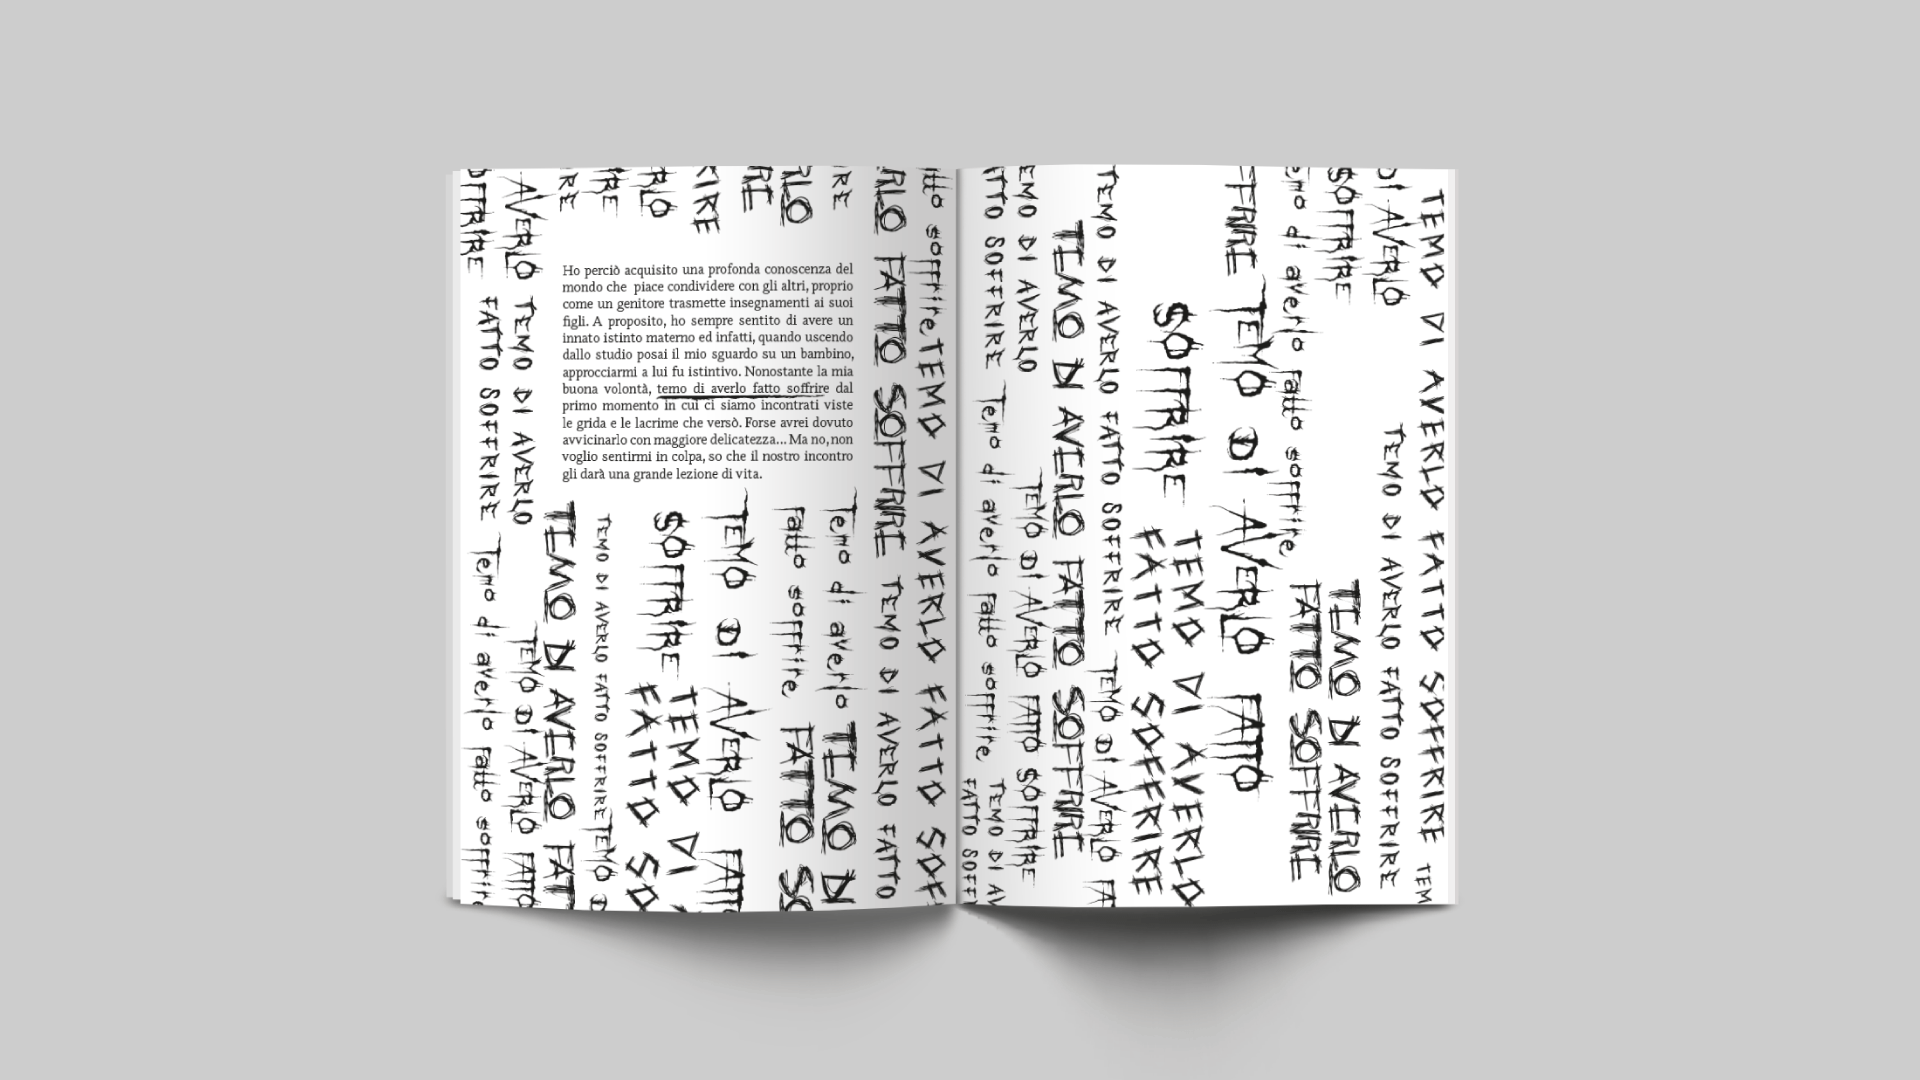 Ho perciò acquisito una profonda conoscenza del
mondo che piace condividere con gli altri, proprio
come un genitore trasmette insegnamenti ai suoi
figli. A proposito, ho sempre sentito di avere un
innato istinto materno ed infatti, quando uscendo
dallo studio posai il mio sguardo su un bambino,
approcciarmi a lui fu istintivo. Nonostante la mia
buona volontà, temo di averlo fatto soffrire dal
primo momento in cui ci siamo incontrati viste
le grida e le lacrime che versò. Forse avrei dovuto
avvicinarlo con maggiore delicatezza... Ma no, non
voglio sentirmi in colpa, so che il nostro incontro
gli darà una grande lezione di vita.
TEMO DI AVERLO
FATTO SOFFRIRE
Temo di averlo fatto soffrire
TEMO DI AVERLO FATTO
TEMO DI AVERLO FAT
TEMO DI AVERLO FATTO SOFFRIRE
TEMO DI
FATTO SO
TEMO DI AVERLO FATTO
SOFFRIRE
Temo di averlo
fatto soffrire
TEMO DI
FATTO SO
RLO FATTO SOFFRIRE
TEMO DI AVERLO FATTO
atto soffrire
TEMO DI AVERLO FATTO SOF
ATTO SOFFRIRE
EMO DI AVERLO
Temo di averlo fatto soffrire
TEMO DI AVERLO FATTO SOFFRIRE
TEMO DI AV
FATTO SOFF
TEMO DI AVERLO FATTO SOFFRIRE
TEMO DI AVERLO FATTO SOFFRIRE
TEMO DI AVERLO FA
TEMO DI AVERLO
FATTO SOFFRIRE
FFRIRE
TEMO DI AVERLO FATTO
SOFFRIRE
emo di averlo fatto soffrire
DI AVERLO
SOFFRIRE
TEMO DI AVERLO
FATTO SOFFRIRE
TEMO DI AVERLO FATTO SOFFRIRE
TEMO DI AVERLO FATTO SOFFRIRE
TEM